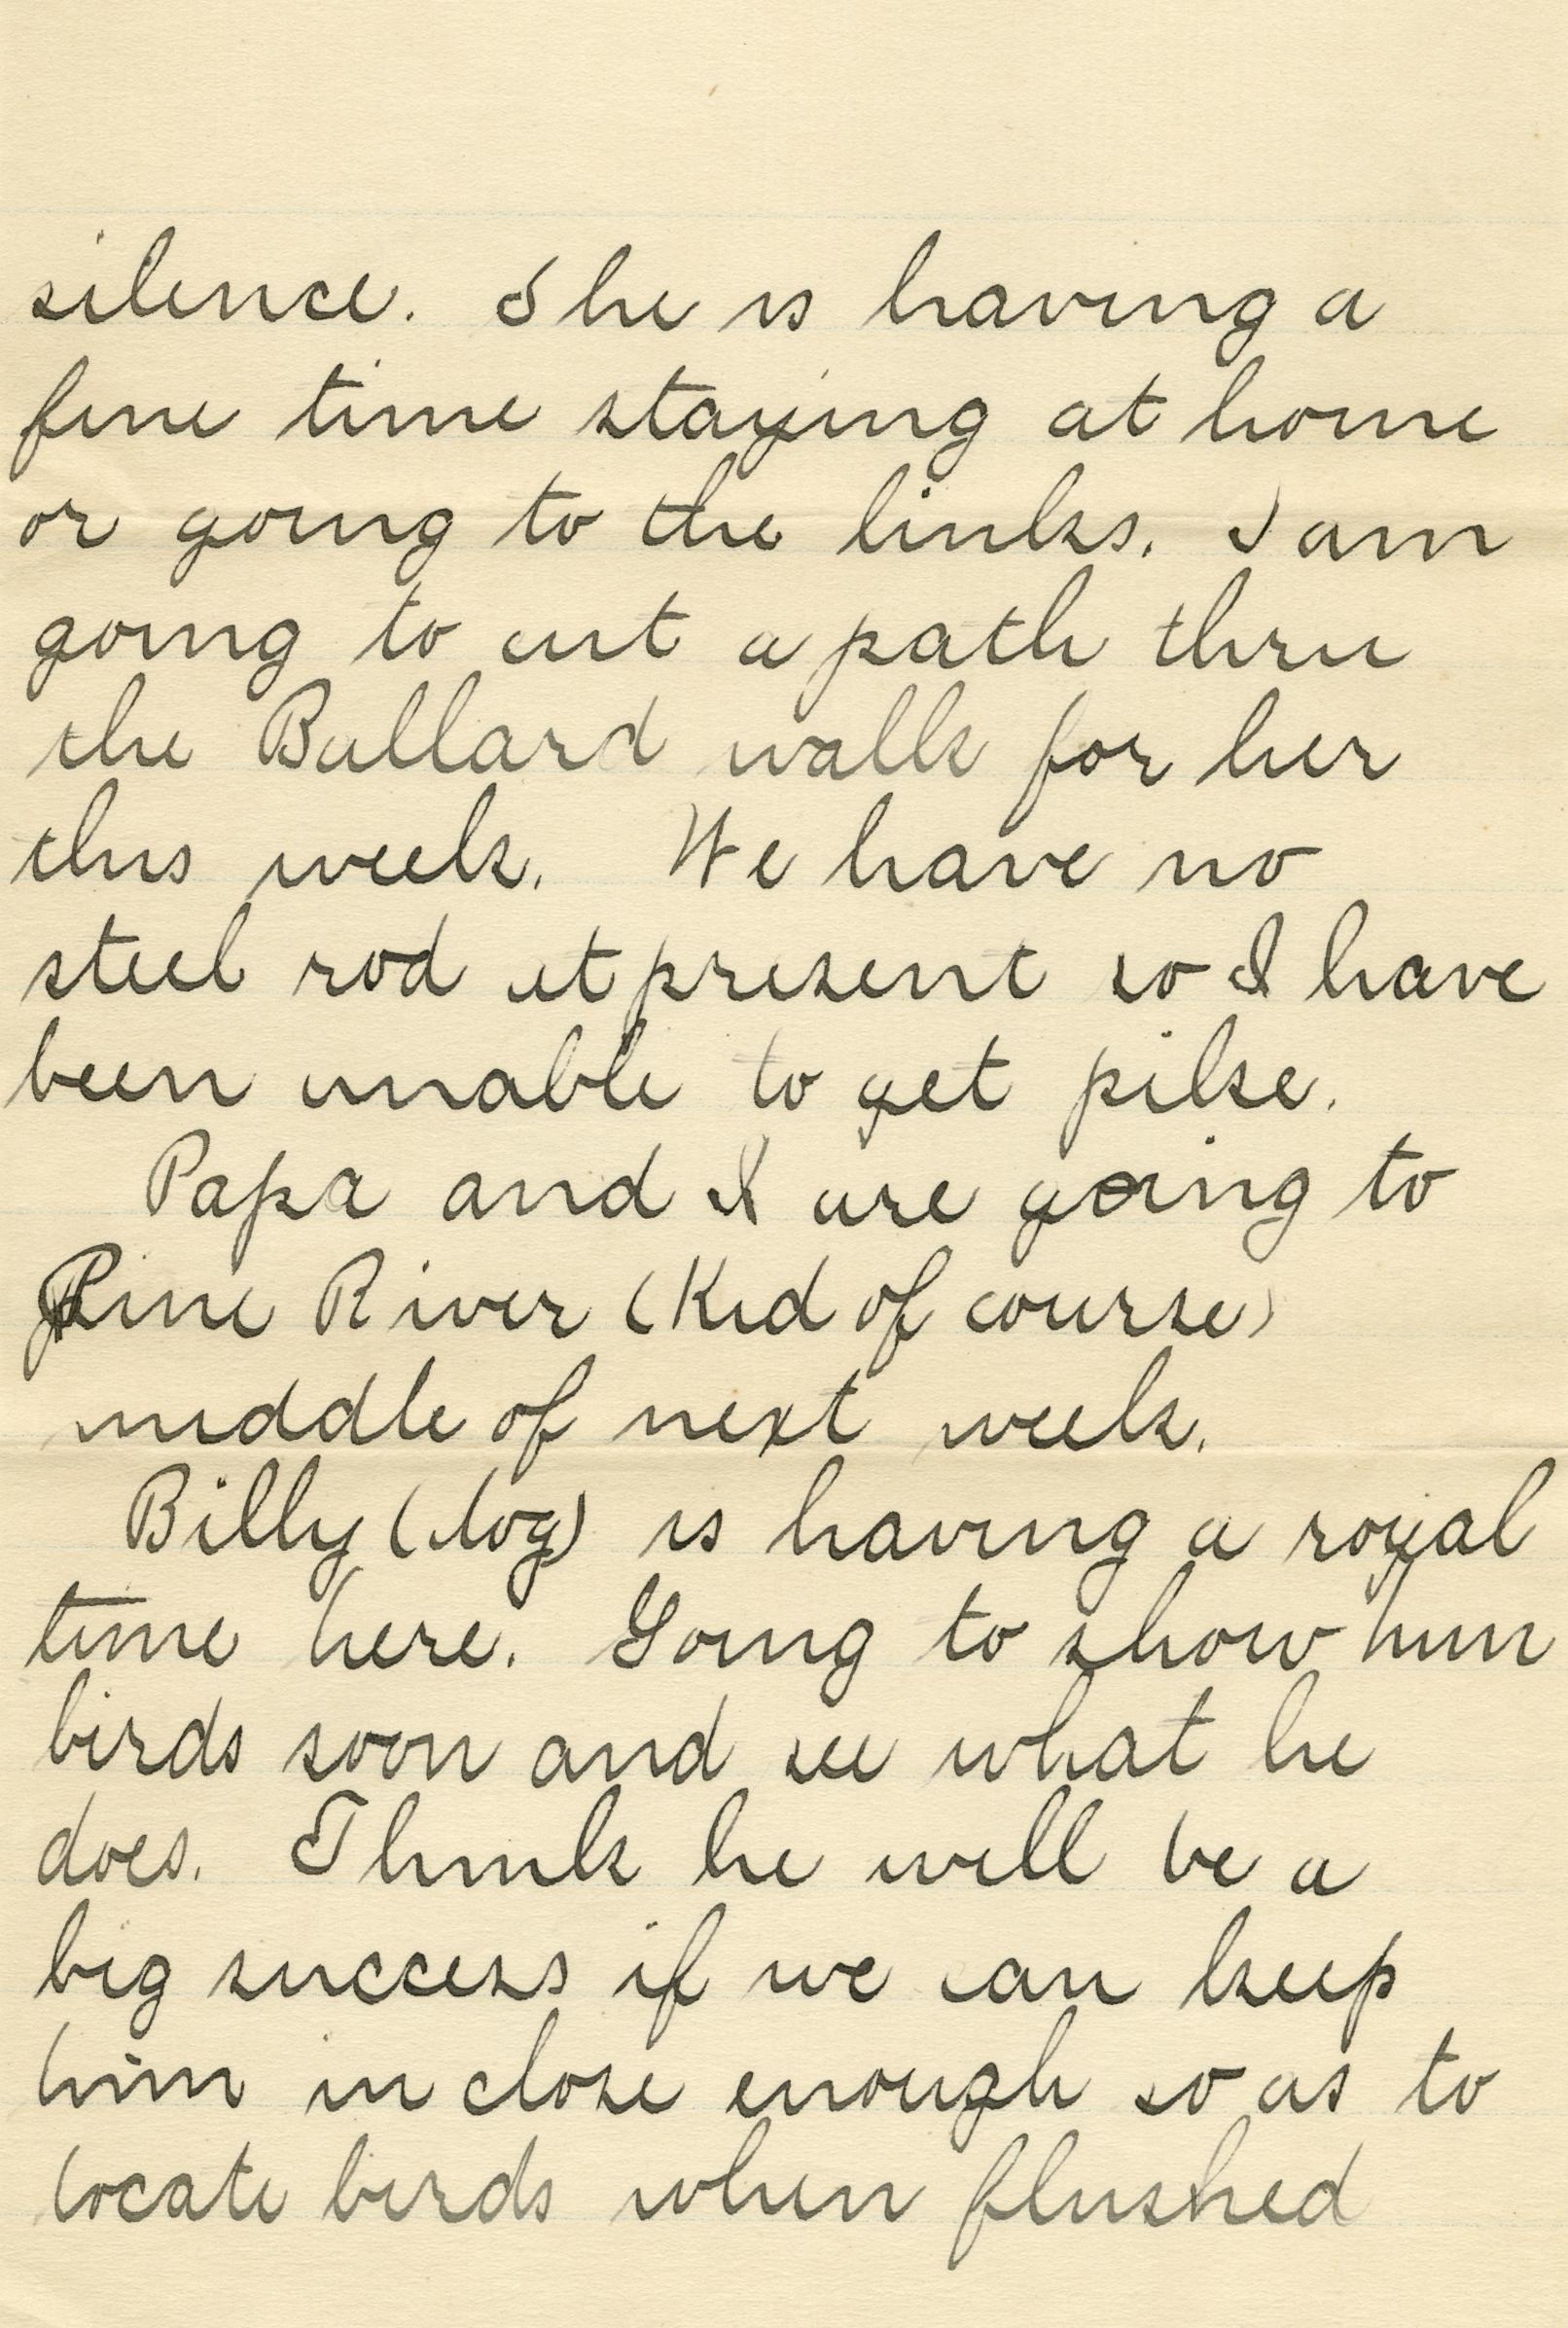 silence. She is having a
fine time staying at home
or going to the links. I am
going to cut a path thru
the Bullard walk for her
this week. We have no
steel rod at present so I have
been unable to get pike.
Papa and I are going to
Pine River (Kid of course)
middle of next week.
Billy (dog) is having a royal
time here. Going to show him
birds soon and see what he
does. Think he will be a
big success if we can keep
him in close enough so as to
locate birds when flushed